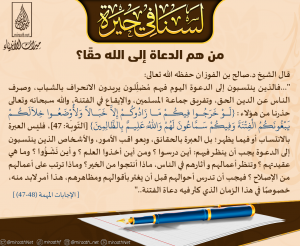 لسنا في حيرة
ميراث الأنبياء
من هم الدعاة إلى الله حقًا؟
قال الشيخ د.صالح بن الفوزان حفظه الله تعالى:
"...فالذين ينتسبون إلى الدعوة اليوم فيهم مضللون يريدون الانحراف بالشباب، وصرف
الناس عن الدين الحق، وتفريق جماعة المسلمين، والإيقاع في الفتنة، والله سبحانه وتعالى
حذرنا من هؤلاء: {لَوْ خَرَجُوا فِيكُمْ مَا زَادُوكُمْ إِلَّا خَبَالًا وَلَأَوْضَعُوا خِلَالَكُمْ
يَبْغُونَكُمُ الْفِتْنَةَ وَفِيكُمْ سَمَّاعُونَ لَهُمْ وَاللَّهُ عَلِيمٌ بِالظَّالِمِينَ} [التوبة: 47]، فليس العبرة
بالانتساب أو فيما يظهر؛ بل العبرة بالحقائق، وبعواقب الأمور، والأشخاص الذين ينتسبون
إلى الدعوة يجب أن ينظر فيهم: أين درسوا؟ ومن أين أخذوا العلم؟ وأين نشؤوا؟ وما هي
عقيدتهم؟ وتنظر أعمالهم وآثارهم في الناس، ماذا أنتجوا من الخير؟ وماذا ترتب على أعمالهم
من الإصلاح؟ فيجب أن تدرس أحوالهم قبل أن يغتر بأقوالهم ومظاهرهم، هذا أمر لابد منه،
خصوصًا في هذا الزمان الذي كثر فيه دعاة الفتنة..."
[الإجابات المهمة (46-47)]
miraathNet
miraathNet